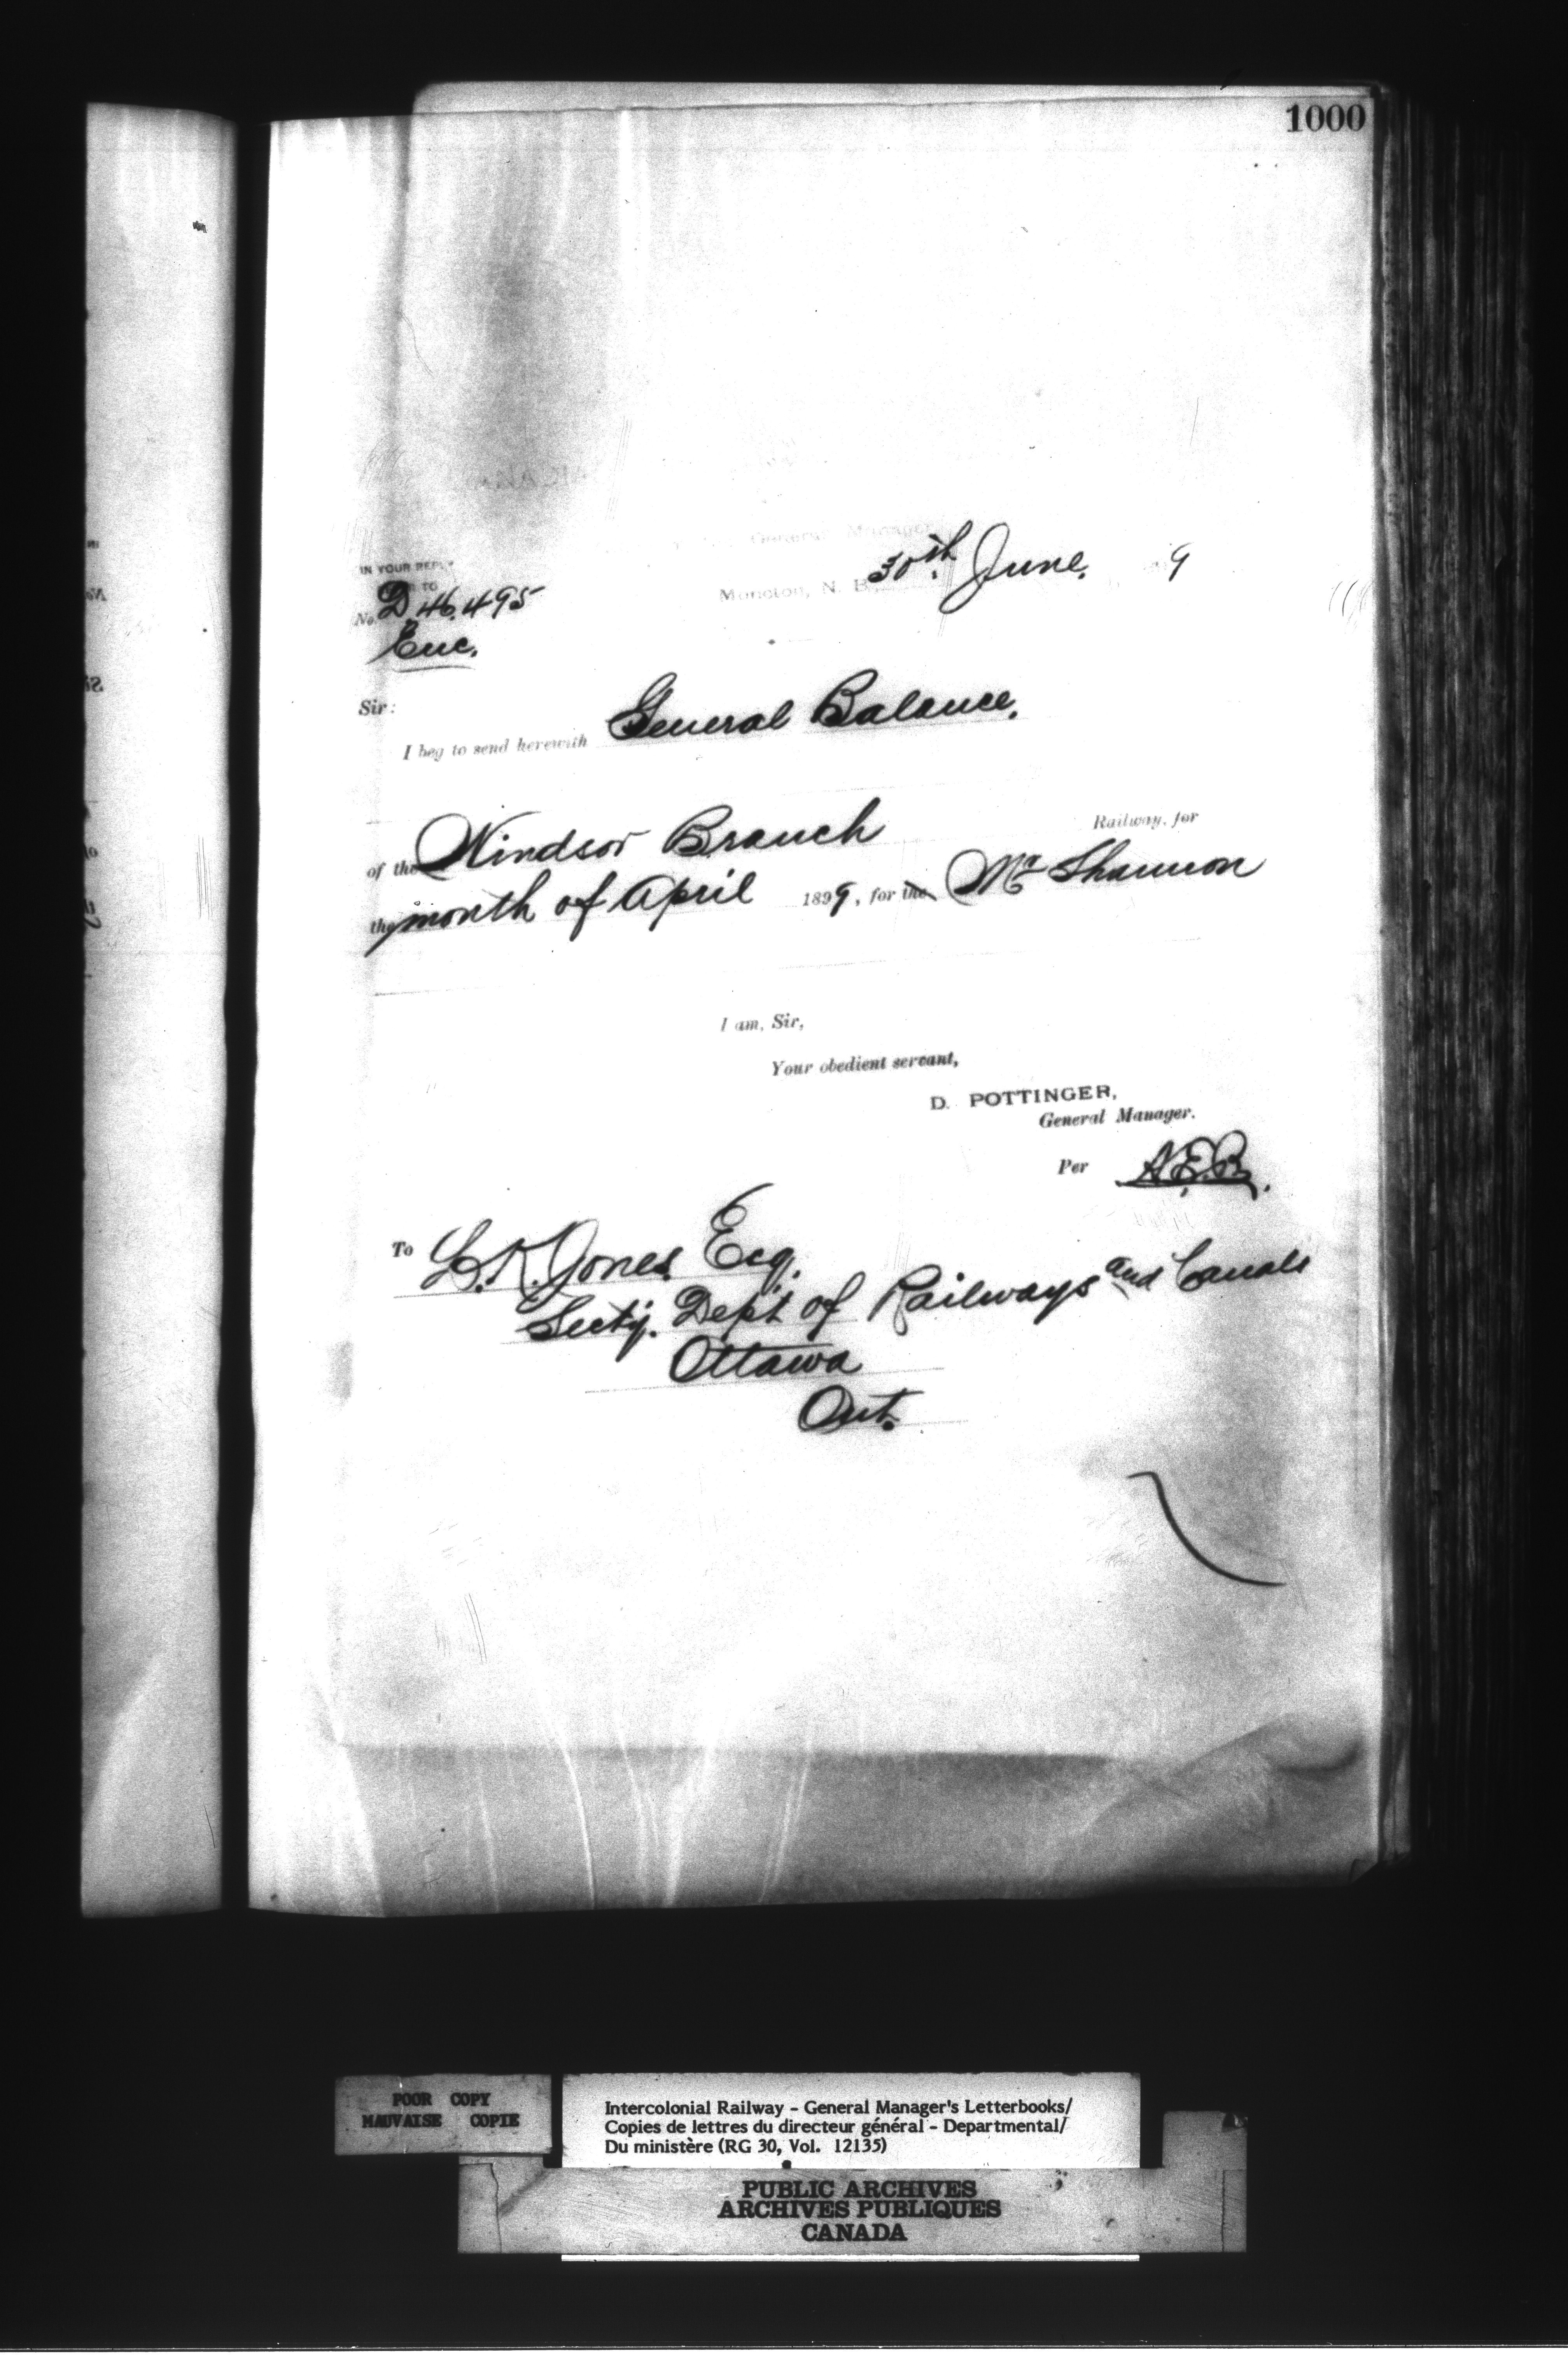 1000
General Manager
IN YOUR REPLY
TO
No. D. 46.495
Moncton, N. B., 30th June. 9
Enc.
Sir:
I beg to send herewith General Balance.
of the Windsor Branch Railway, for
the month of April 1899, for the Mr Shannon
I am, Sir,
Your obedient servant,
D. POTTINGER,
General Manager.
Per A.E.B.
To L.K. Jones. Esq.
Secty. Dept of Railways and Canals
Ottawa
Ont.
POOR COPY
MAUVAISE COPIE
Intercolonial Railway - General Manager's Letterbooks/
Copies de lettres du directeur général - Departmental/
Du ministère (RG 30, Vol. 12135)
PUBLIC ARCHIVES
ARCHIVES PUBLIQUES
CANADA